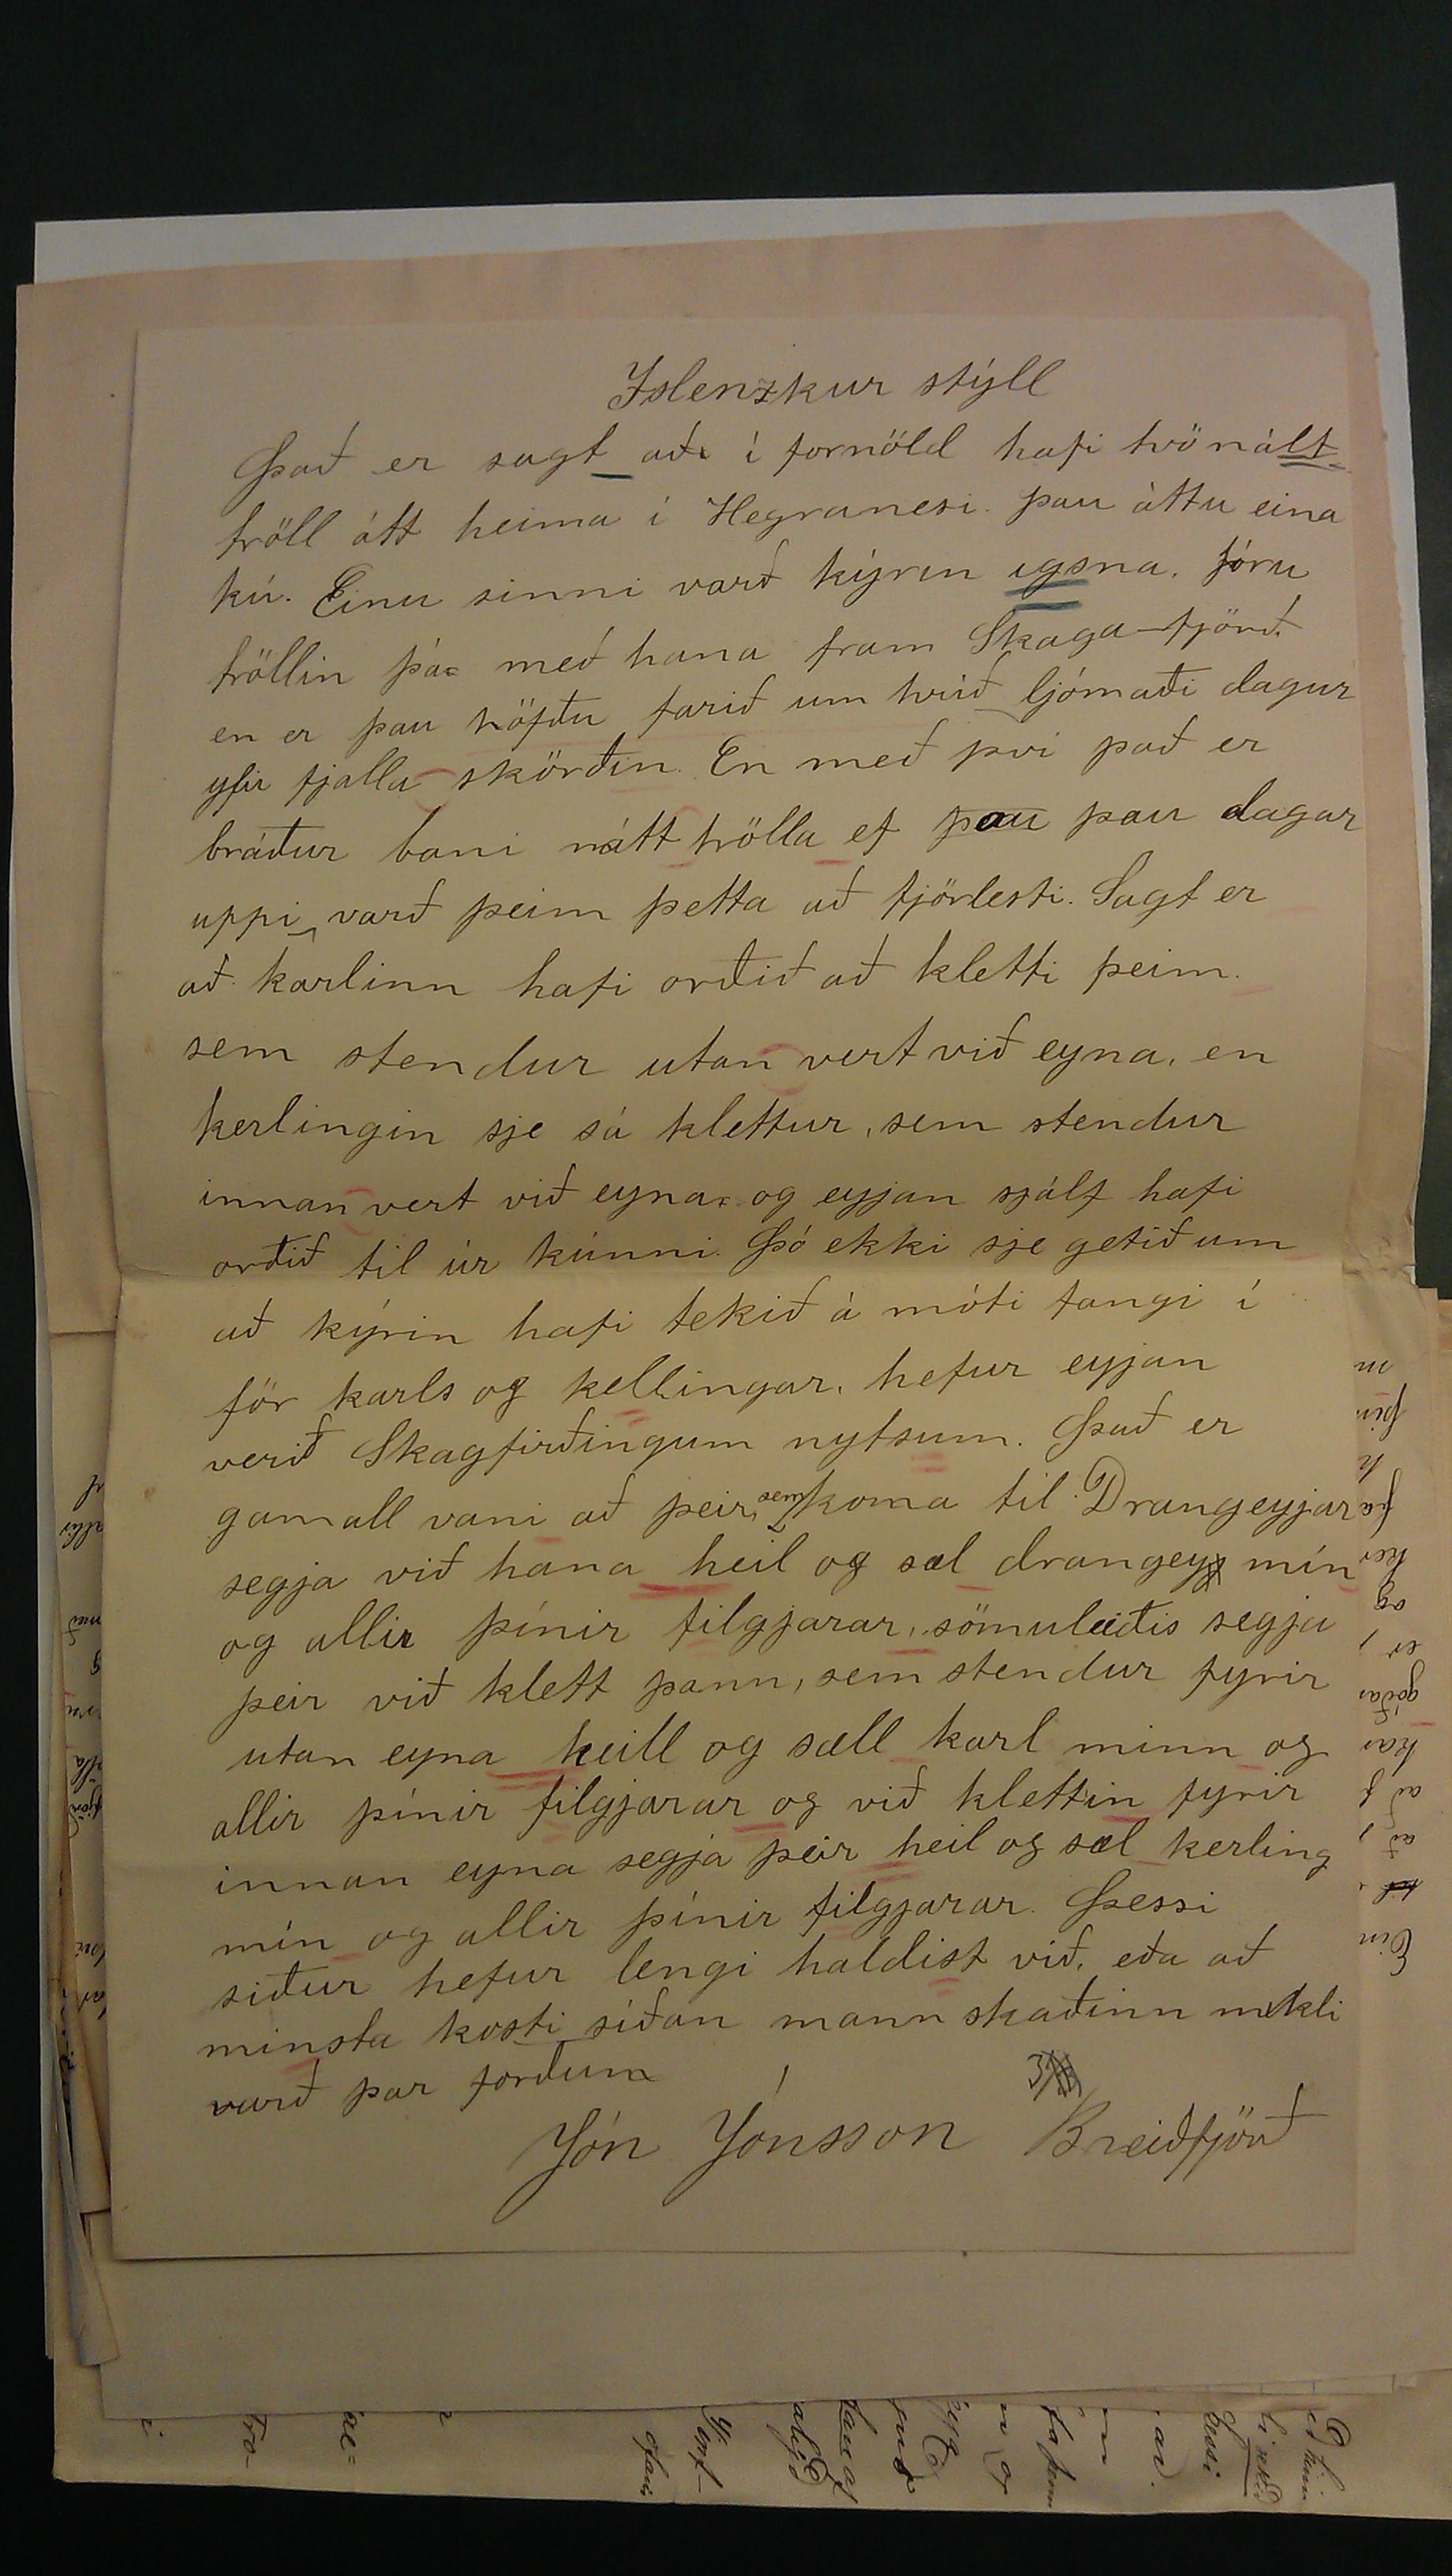 Islenzkur stýll
Það er sagt að í fornöld hafi tvö nált
tröll átt heima í Hegranesi. þau áttu eina
kú. Einu sinni varð kýrin igsna. fóru
tröllin þá með hana fram Skaga-fjörð.
en er þau höfðu farið um hríð ljómaði dagur
yfir fjalla skörðin. En með því það er
bráður bani nátt trölla ef þau þau dagar
uppi, varð þeim þetta að fjörlesti. Sagt er
að karlinn hafi orðið að kletti þeim.
sem stendur utan vert við eyna, en
kerlingin sje sá klettur, sem stendur
innan vert við eyna og eyjan sjálf hafi
orðið til úr kúnni. Þó ekki sje getið um
að kýrin hafi tekið á móti fangi í
för karls og kellingar, hefur eyjan
verið Skagfirðingum nytsum. Það er
gamall vani að þeir, sem koma til Drangeyjar
segja við hana heil og sæl drangey mín
og allir þínir filgjarar, sömuleiðis segja
þeir við klett þann, sem stendur fyrir
utan eyna heill og sæll karl minn og
allir þínir filgjarar og við klettin fyrir
innan eyna segja þeir heil og sæl kerling
mín og allir þínir filgjarar. Þessi
siður hefur lengi haldist við, eða að
minsta kosti síðan mann skaðinn mikli
varð þar forðum
Jón Jónsson Breiðfjörð